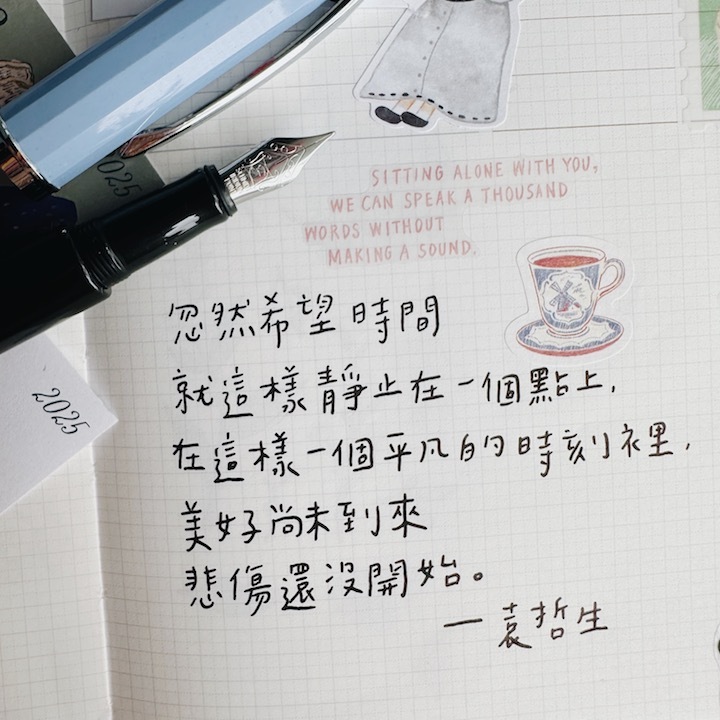 2025
SITTING ALONE WITH YOU,
WE CAN SPEAK A THOUSAND
WORDS WITHOUT
MAKING A SOUND.
忽然希望時間
就這樣靜止在一個點上,
在這樣一個平凡的時刻裡,
2025
美好尚未到來
悲傷還沒開始。
— 袁哲生